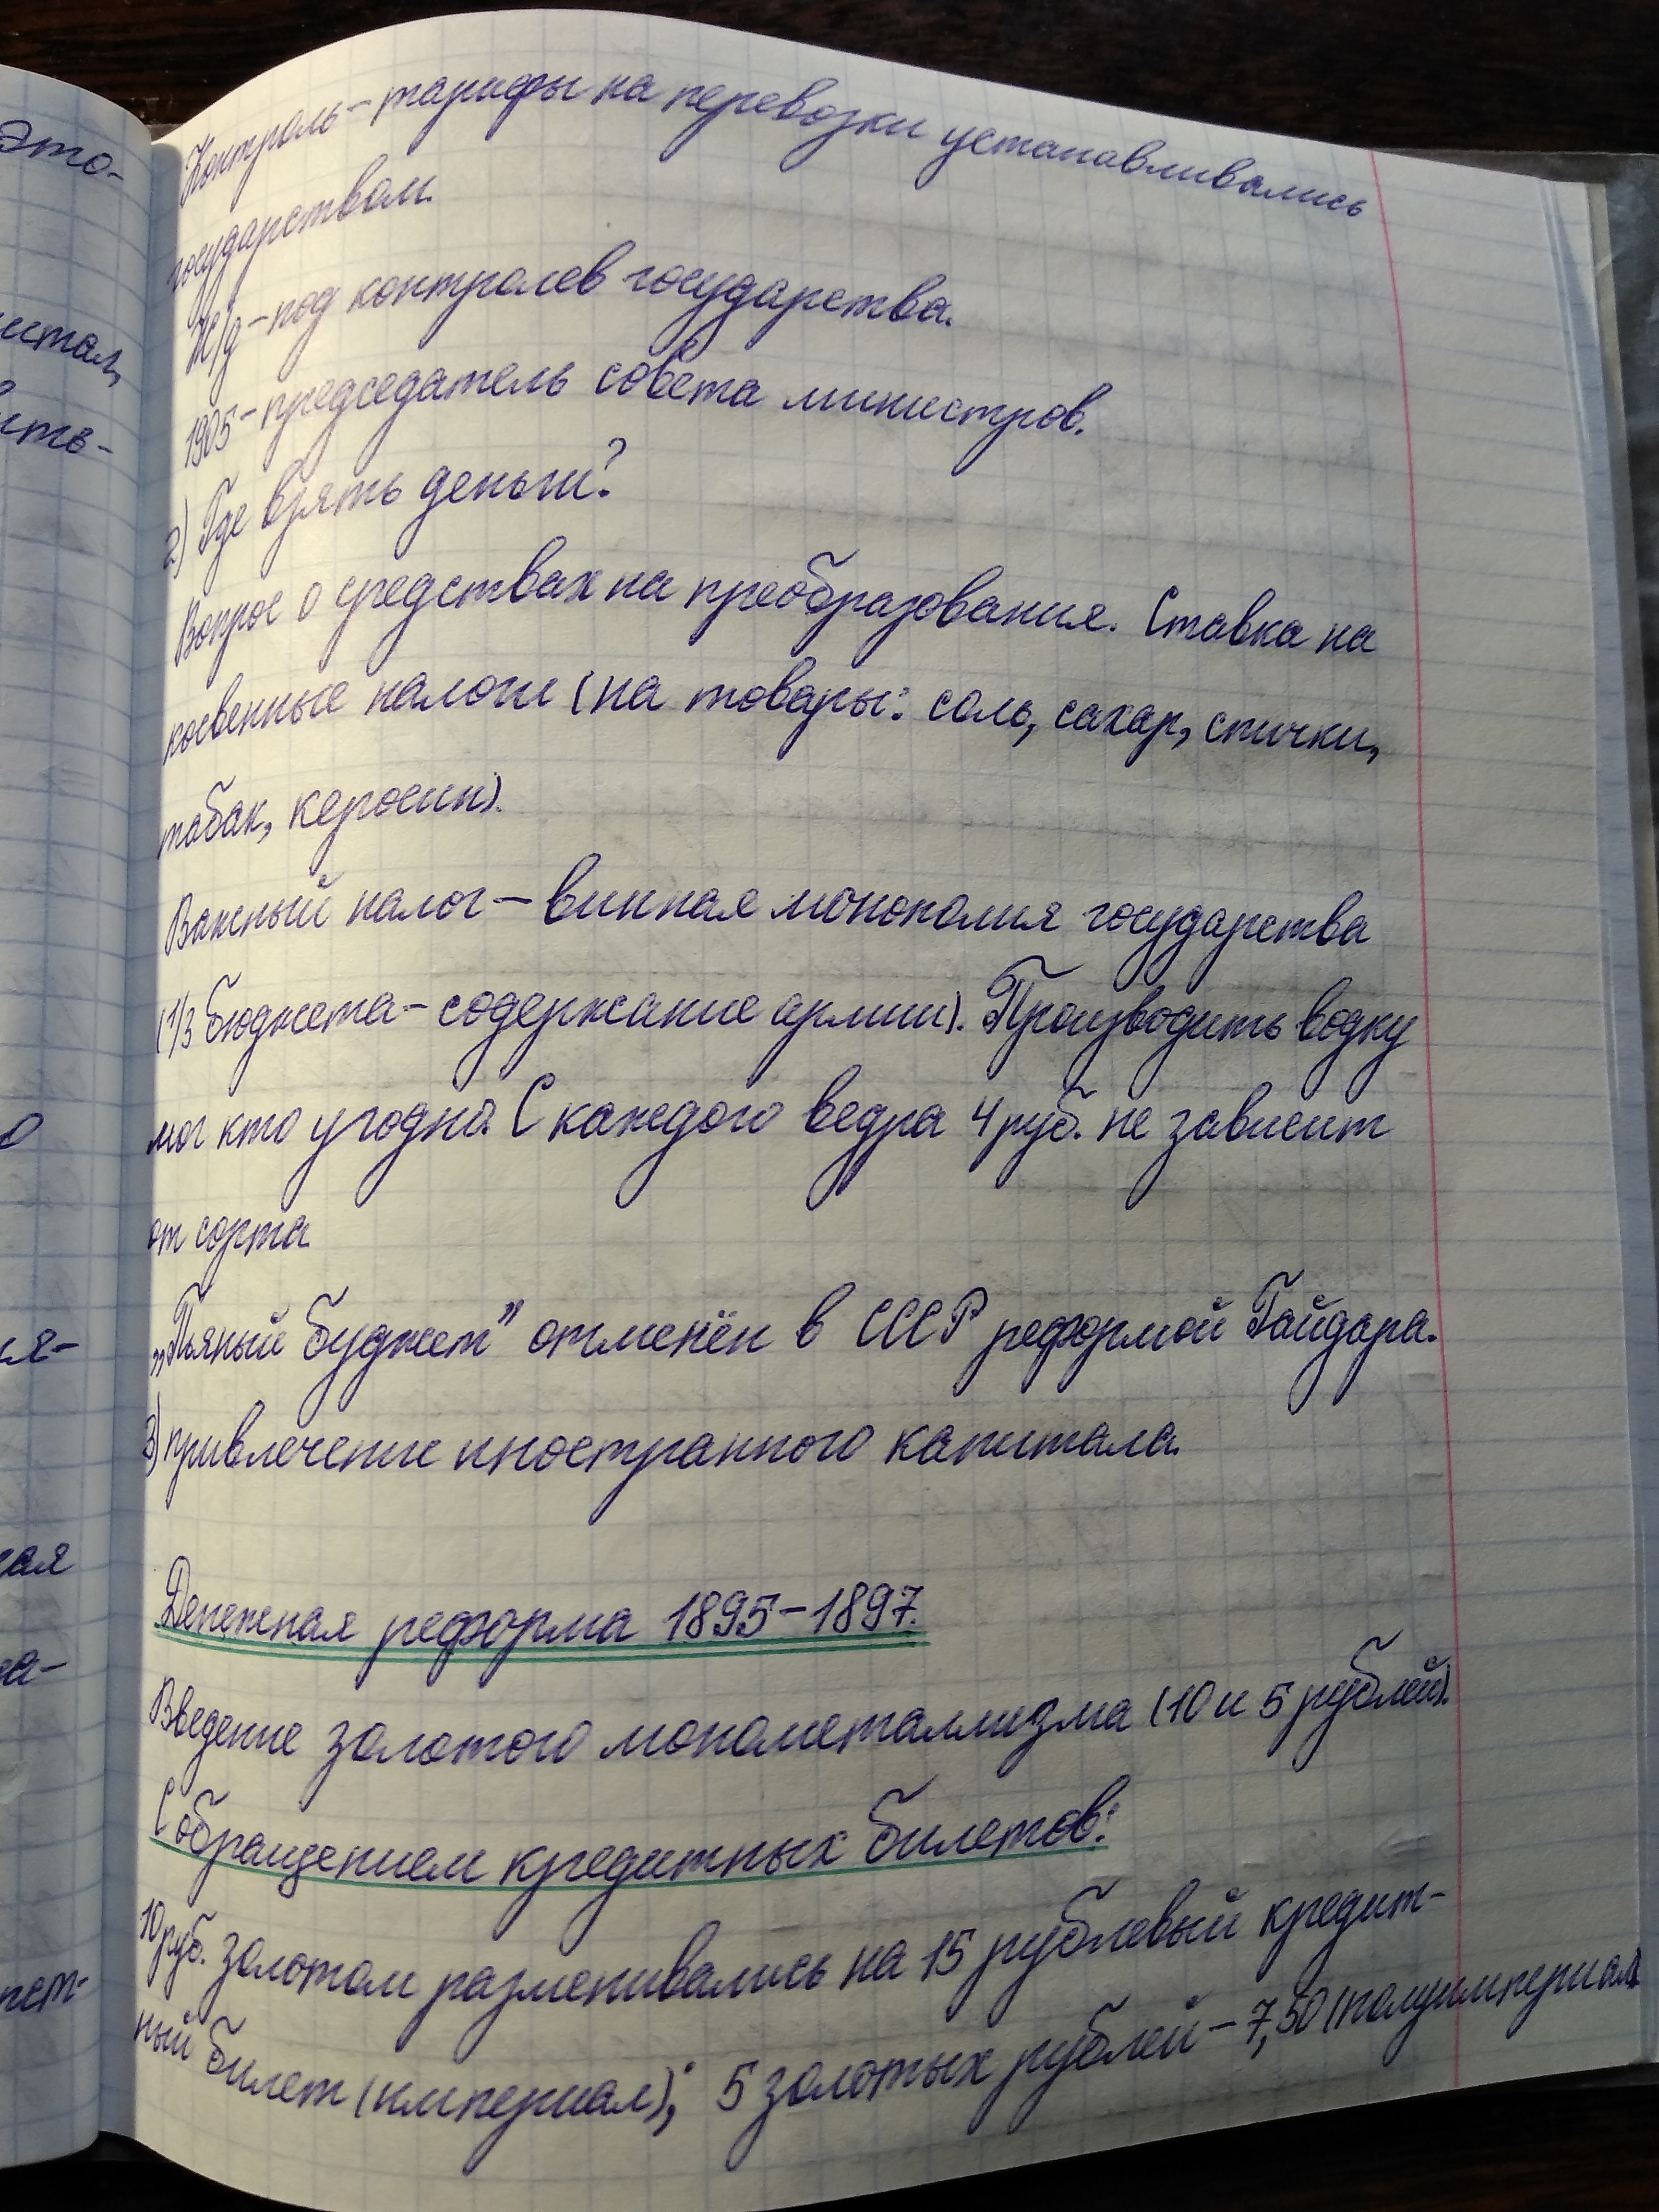 Контроль – тарифы на перевозки устанавливались
государством.
Ж/д – под контролев государства.
1905 – председатель совета министров.
2) Где взять деньги?
Вопрос о средствах на преобразования. Ставка на
косвенные налоги (на товары: соль, сахар, спички,
табак, керосин).
Важный налог – винная монополия государства
(1/3 бюджета – содержание армии). Производить водку
мог кто угодно. С каждого ведра 4 руб. не зависит
от сорта
„Пьяный буджет" отменён в СССР реформой Гайдара.
3) привлечение иностранного капитала.
Денежная реформа 1895–1897.
Введение золотого монометаллизма (10 и 5 рублей).
С обращением кредитных билетов:
10 руб. золотом разменивались на 15 рублевый кредит-
ный билет (империал); 5 золотых рублей – 7,50 (полуимпериал)